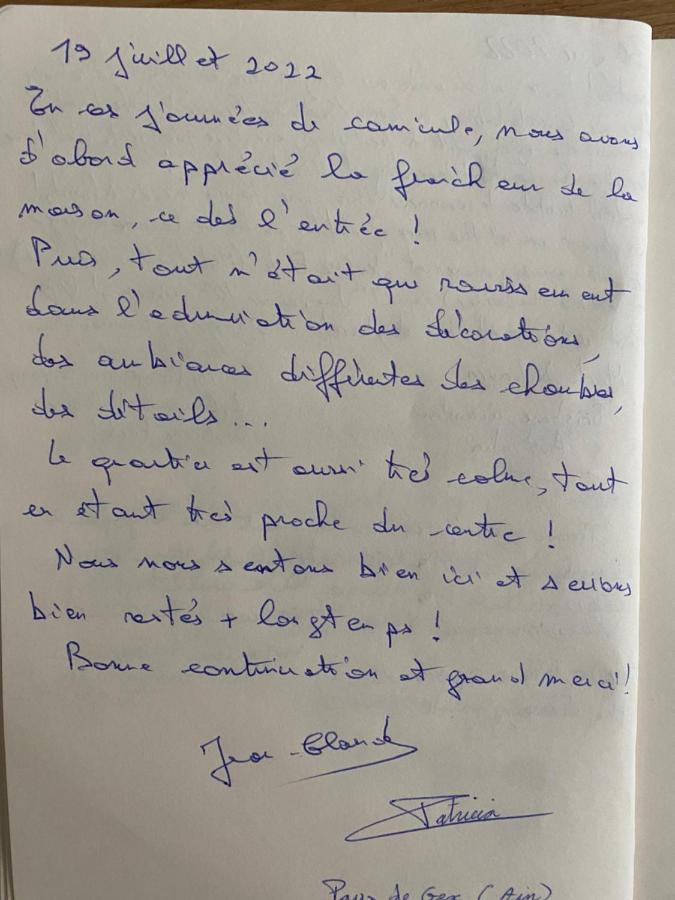 19 juillet 2022
En ces journées de canicule, nous avons
d'abord apprécié la fraîcheur de la
maison, ce dès l'entrée !
Puis, tout n'était que ravissement
dans l'admiration des décorations,
des ambiances différentes des chambres,
des détails...
Le quartier est aussi très calme, tout
en étant très proche du centre !
Nous nous sentons bien ici et serions
bien restés + longtemps !
Bonne continuation et grand merci !
Jean-Claude
Patricia
Pays de Gex (Ain)